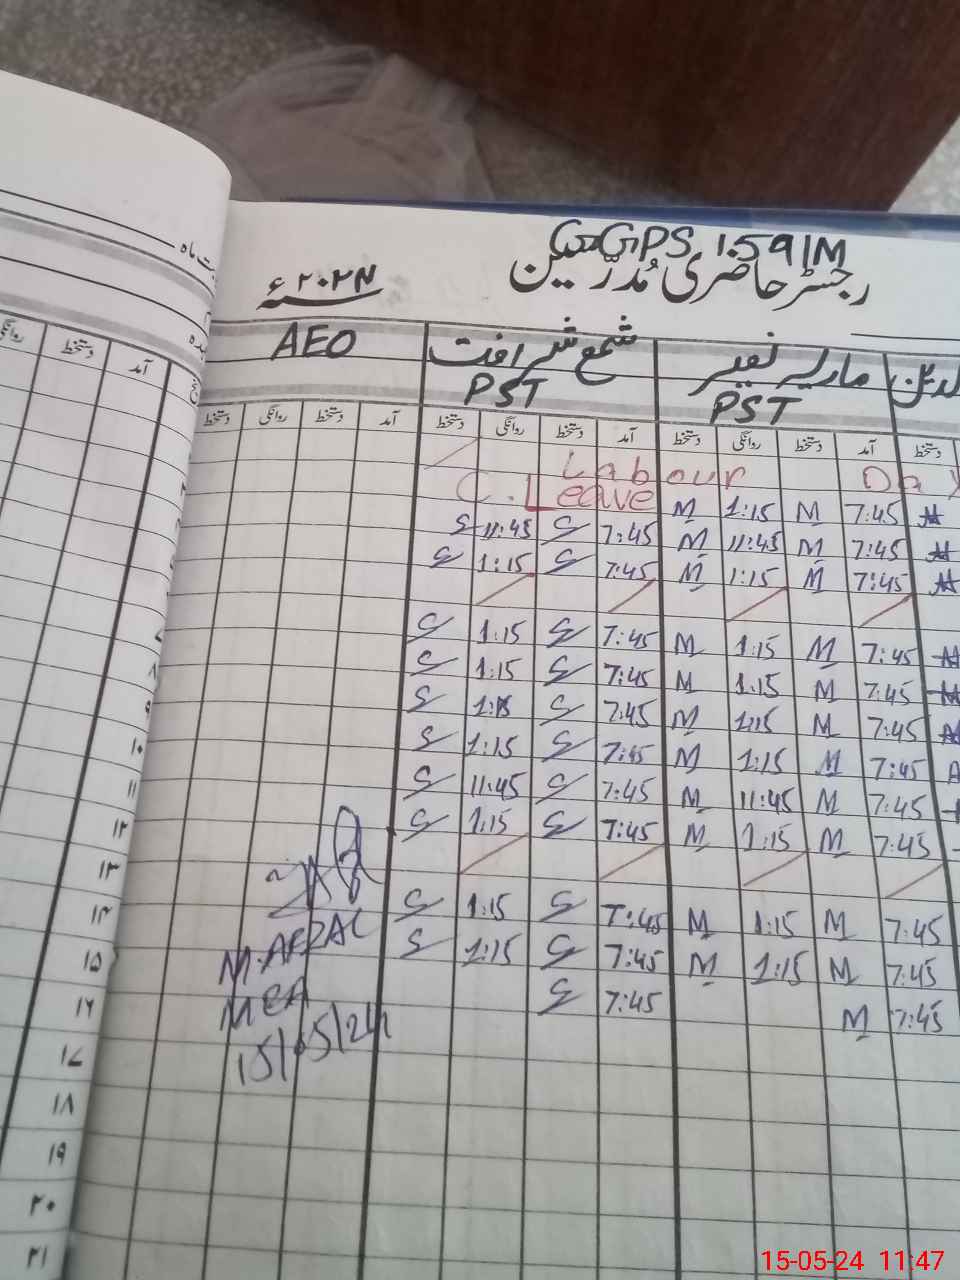 GGPS 159/M
رجسٹر حاضری مُدرّسین
سنہ ۲۰۲۴ء
AEO شمع شرافت ماریہ نصیر
PST PST
دستخط روانگی دستخط آمد دستخط روانگی دستخط آمد دستخط روانگی دستخط آمد دستخط
Labour Day
C. Leave M 1:15 M 7:45
S 11:45 S 7:45 M 11:45 M 7:45
S 1:15 S 7:45 M 1:15 M 7:45
S 1:15 S 7:45 M 1:15 M 7:45
S 1:15 S 7:45 M 1:15 M 7:45
S 1:15 S 7:45 M 1:15 M 7:45
S 1:15 S 7:45 M 1:15 M 7:45
S 11:45 S 7:45 M 11:45 M 7:45
S 1:15 S 7:45 M 1:15 M 7:45
S 1:15 S 7:45 M 1:15 M 7:45
S 1:15 S 7:45 M 1:15 M 7:45
S 7:45 M 7:45
M. AFZAL
MEA
15/05/24
روانگی دستخط آمد
۷
۸
۹
۱۰
۱۱
۱۲
۱۳
۱۴
۱۵
۱۶
۱۷
۱۸
۱۹
۲۰
۲۱
15-05-24 11:47